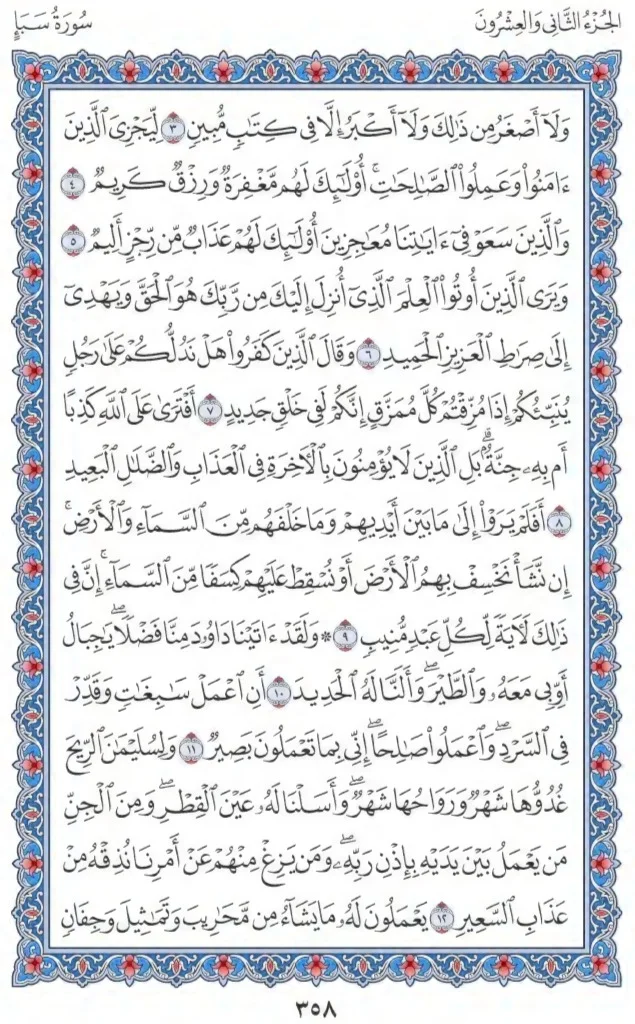 الجُزْءُ الثَّانِي وَالعِشْرُونَ
سُورَةُ سَبَإٍ
وَلَآ أَصۡغَرُ مِن ذَٰلِكَ وَلَآ أَكۡبَرُ إِلَّا فِي كِتَٰبٖ مُّبِينٖ ٣ لِّيَجۡزِيَ ٱلَّذِينَ
ءَامَنُواْ وَعَمِلُواْ ٱلصَّٰلِحَٰتِۚ أُوْلَٰٓئِكَ لَهُم مَّغۡفِرَةٞ وَرِزۡقٞ كَرِيمٞ ٤
وَٱلَّذِينَ سَعَوۡ فِيٓ ءَايَٰتِنَا مُعَٰجِزِينَ أُوْلَٰٓئِكَ لَهُمۡ عَذَابٞ مِّن رِّجۡزٍ أَلِيمٞ ٥
وَيَرَى ٱلَّذِينَ أُوتُواْ ٱلۡعِلۡمَ ٱلَّذِيٓ أُنزِلَ إِلَيۡكَ مِن رَّبِّكَ هُوَ ٱلۡحَقَّ وَيَهۡدِيٓ
إِلَىٰ صِرَٰطِ ٱلۡعَزِيزِ ٱلۡحَمِيدِ ٦ وَقَالَ ٱلَّذِينَ كَفَرُواْ هَلۡ نَدُلُّكُمۡ عَلَىٰ رَجُلٖ
يُنَبِّئُكُمۡ إِذَا مُزِّقۡتُمۡ كُلَّ مُمَزَّقٍ إِنَّكُمۡ لَفِي خَلۡقٖ جَدِيدٍ ٧ أَفۡتَرَىٰ عَلَى ٱللَّهِ كَذِبًا
أَم بِهِۦ جِنَّةُۢۗ بَلِ ٱلَّذِينَ لَا يُؤۡمِنُونَ بِٱلۡأٓخِرَةِ فِي ٱلۡعَذَابِ وَٱلضَّلَٰلِ ٱلۡبَعِيدِ
٨ أَفَلَمۡ يَرَوۡاْ إِلَىٰ مَا بَيۡنَ أَيۡدِيهِمۡ وَمَا خَلۡفَهُم مِّنَ ٱلسَّمَآءِ وَٱلۡأَرۡضِۚ
إِن نَّشَأۡ نَخۡسِفۡ بِهِمُ ٱلۡأَرۡضَ أَوۡ نُسۡقِطۡ عَلَيۡهِمۡ كِسَفٗا مِّنَ ٱلسَّمَآءِۚ إِنَّ فِي
ذَٰلِكَ لَأٓيَةٗ لِّكُلِّ عَبۡدٖ مُّنِيبٖ ٩ ۞ وَلَقَدۡ ءَاتَيۡنَا دَاوُۥدَ مِنَّا فَضۡلٗاۖ يَٰجِبَالُ
أَوِّبِي مَعَهُۥ وَٱلطَّيۡرَۖ وَأَلَنَّا لَهُ ٱلۡحَدِيدَ ١٠ أَنِ ٱعۡمَلۡ سَٰبِغَٰتٖ وَقَدِّرۡ
فِي ٱلسَّرۡدِۖ وَٱعۡمَلُواْ صَٰلِحًاۖ إِنِّي بِمَا تَعۡمَلُونَ بَصِيرٞ ١١ وَلِسُلَيۡمَٰنَ ٱلرِّيحَ
غُدُوُّهَا شَهۡرٞ وَرَوَاحُهَا شَهۡرٞۖ وَأَسَلۡنَا لَهُۥ عَيۡنَ ٱلۡقِطۡرِۖ وَمِنَ ٱلۡجِنِّ
مَن يَعۡمَلُ بَيۡنَ يَدَيۡهِ بِإِذۡنِ رَبِّهِۦۖ وَمَن يَزِغۡ مِنۡهُمۡ عَنۡ أَمۡرِنَا نُذِقۡهُ مِنۡ
عَذَابِ ٱلسَّعِيرِ ١٢ يَعۡمَلُونَ لَهُۥ مَا يَشَآءُ مِن مَّحَٰرِيبَ وَتَمَٰثِيلَ وَجِفَانٖ
٣٥٨